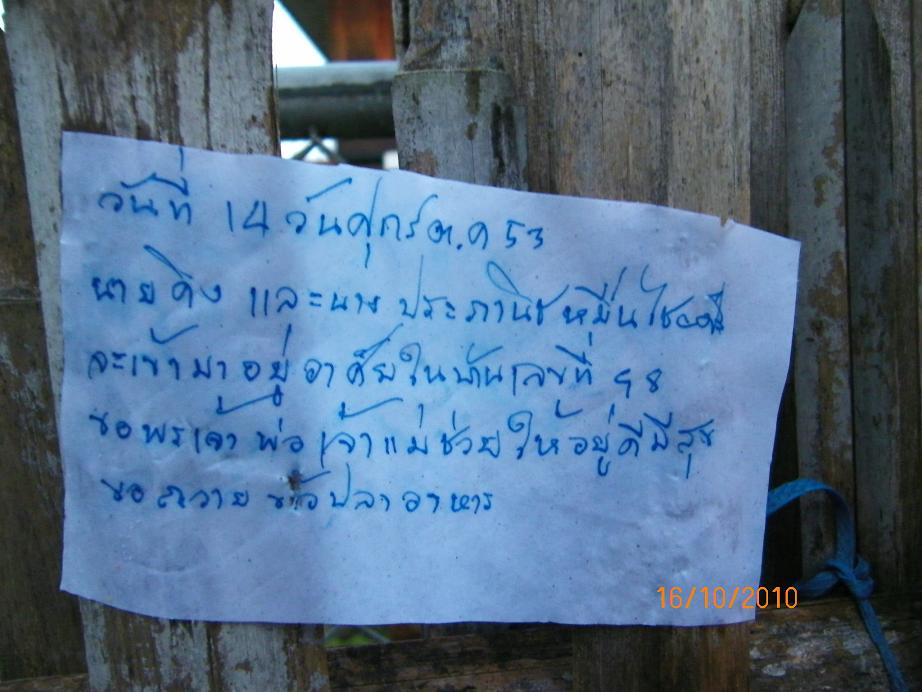 วันที่ 14 วันศุกร์ ต.ค 53
นายคิง และนาย ประภานิช หมื่นไชย
จะเข้ามาอยู่อาศัยในบ้านเลขที่ 98
ขอพรเจ้าพ่อเจ้าแม่ช่วยให้อยู่ดีมีสุข
ขอถวาย ข้าวปลาอาหาร
16/10/2010